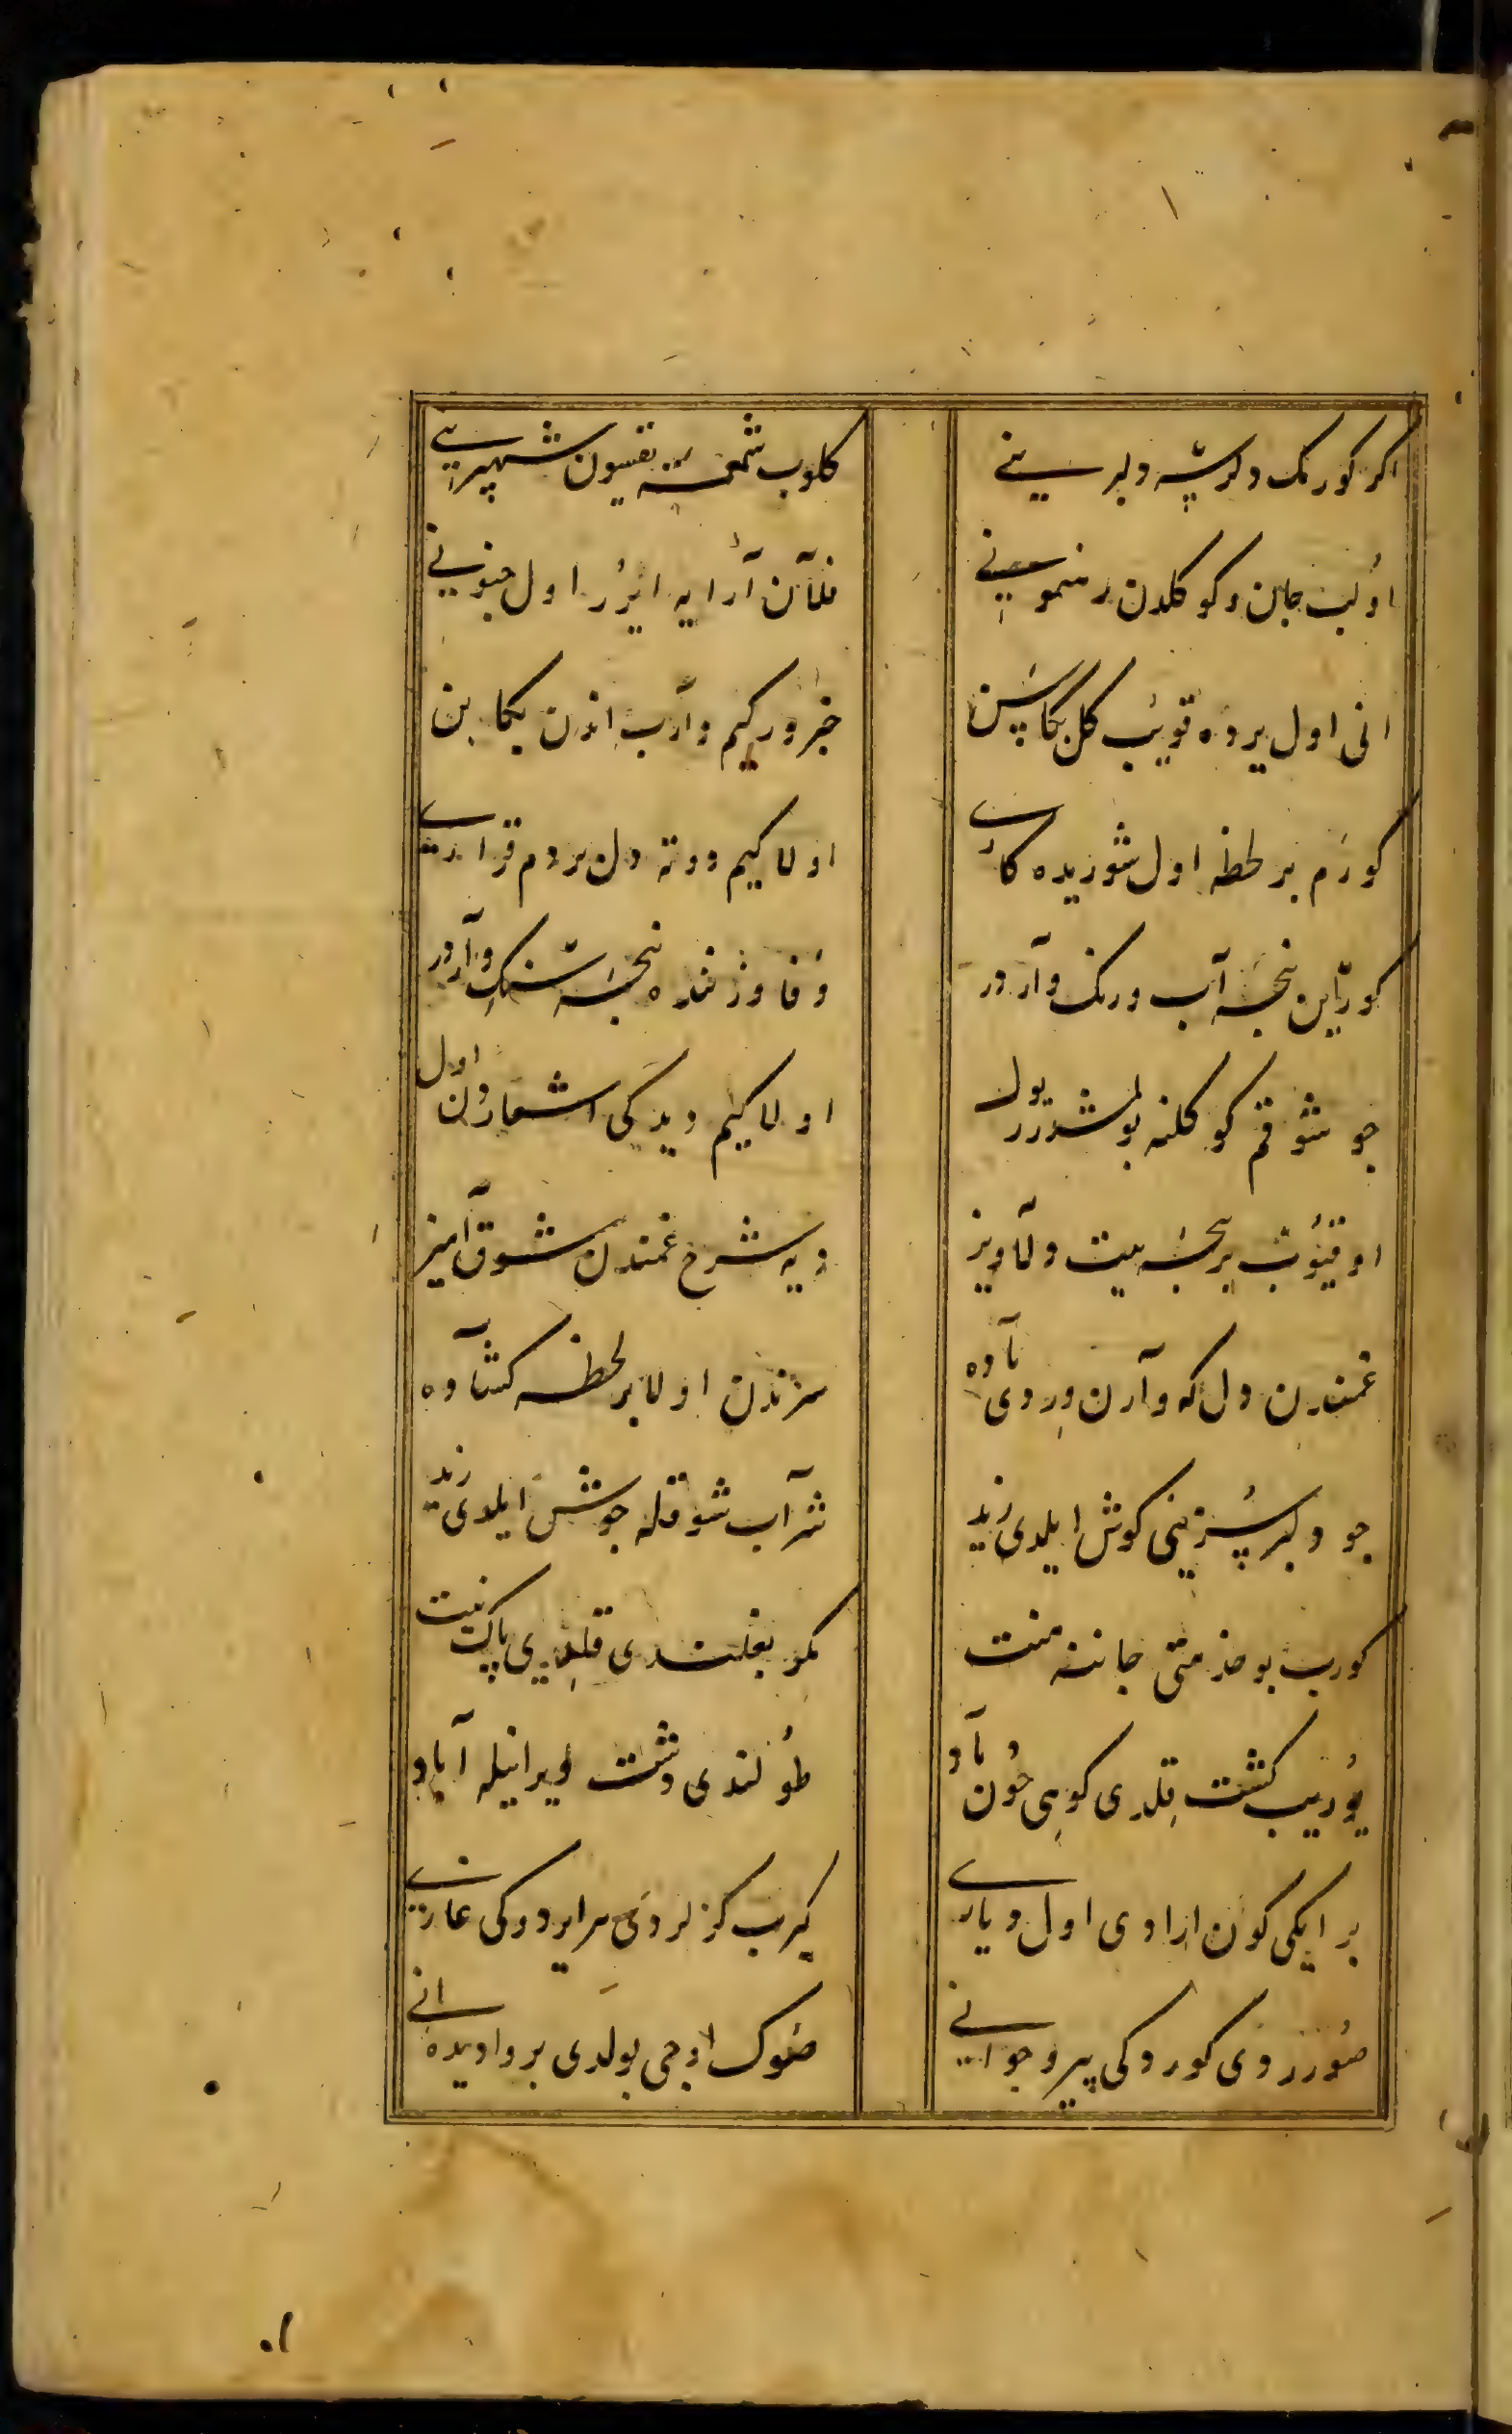 اکر کورنک دلرسه دلبر سینے
کلوب شمعمه یقسون شهپرینے
اولب جان و کوکلدن رهنمونے
فلان آرایه ایرر اول جنونے
انی اول یرده قویب کل بکا سن
خبر ور کیم وارب اندن یکا بن
کورم بر لحظه اول شوریده کارے
اولا کیم دوته دل بر دم قرارے
کورین نیجه آب و رنک واردر
وفا وزننده نیجه سنک واردر
چو شوقم کوکلنه بولمشدرر یول
اولا کیم دیدکی اشعاردن اول
اوقیوب بر نیجه بیت دلاویز
دیه شرح غمندن شوق آمیز
غمندن دل که وارن وردی باده
سزندن اولا بر لحظه کشاده
چو دلبر سزینی کوش ایلدی زید
شراب شوقله جوش ایلدی زید
کورب بو خذمتی جاننه منت
بغلندی قلدی پاک نیت
یوریب کشت قلدی کوهی چون باد
طولندی دشت ویرانیله آباد
بر ایکی کون ارادی اول دیارے
کیرب کزلردی هر ایردوکی غارے
صورردی کوردوکی پیر و جوانے
صوک اوجی بولدی بر وادیده انے